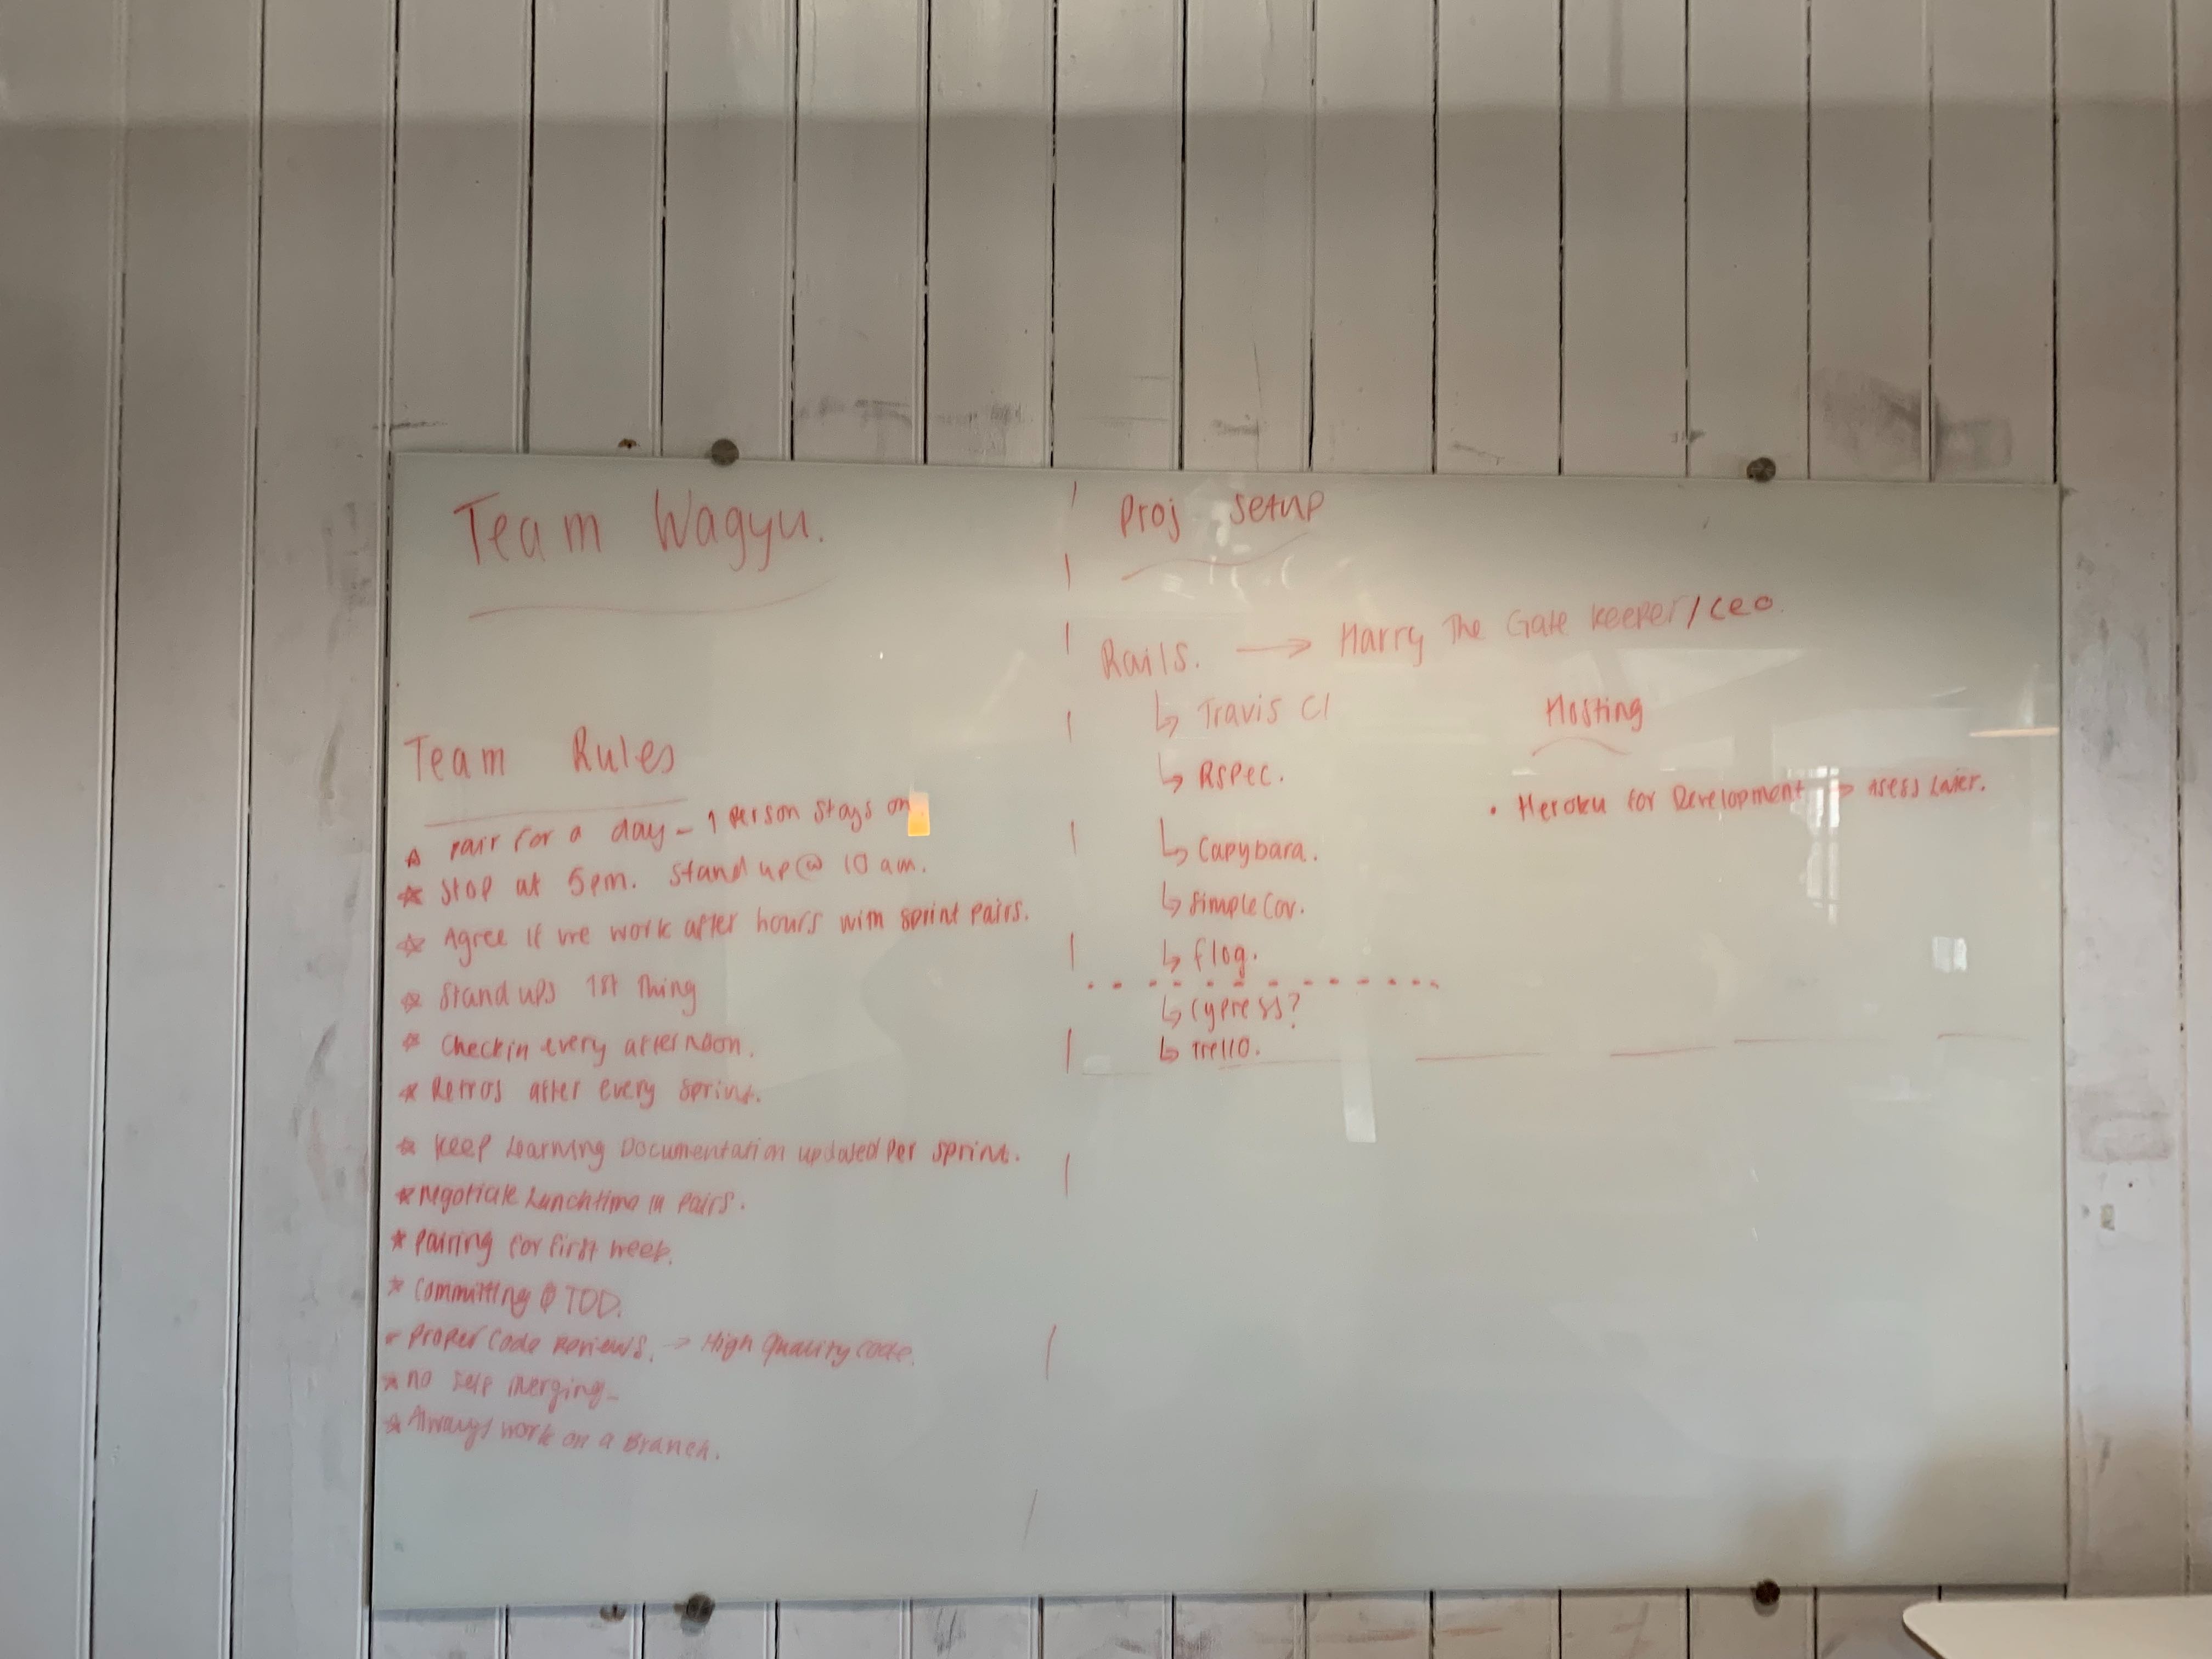 Team Wagyu.
Team Rules
Pair for a day - 1 Person Stays on
Stop at 5pm. Stand up @ 10 am.
Agree if we work after hours with sprint pairs.
Stand ups 1st Thing
Checkin every afternoon.
Retros after every sprint.
Keep Learning Documentation updated Per sprint.
Negotiate Lunchtime in pairs.
Pairing for first week.
Committing TDD.
Proper Code Reviews. → High Quality Code.
no self merging
Always work on a Branch.
Proj Setup
Rails. → Harry The Gate Keeper/CEO
↳ Travis CI
↳ RSpec.
↳ Capybara.
↳ Simple Cov.
↳ flog.
↳ Cypress?
↳ Trello.
Hosting
• Heroku for Development → asess Later.